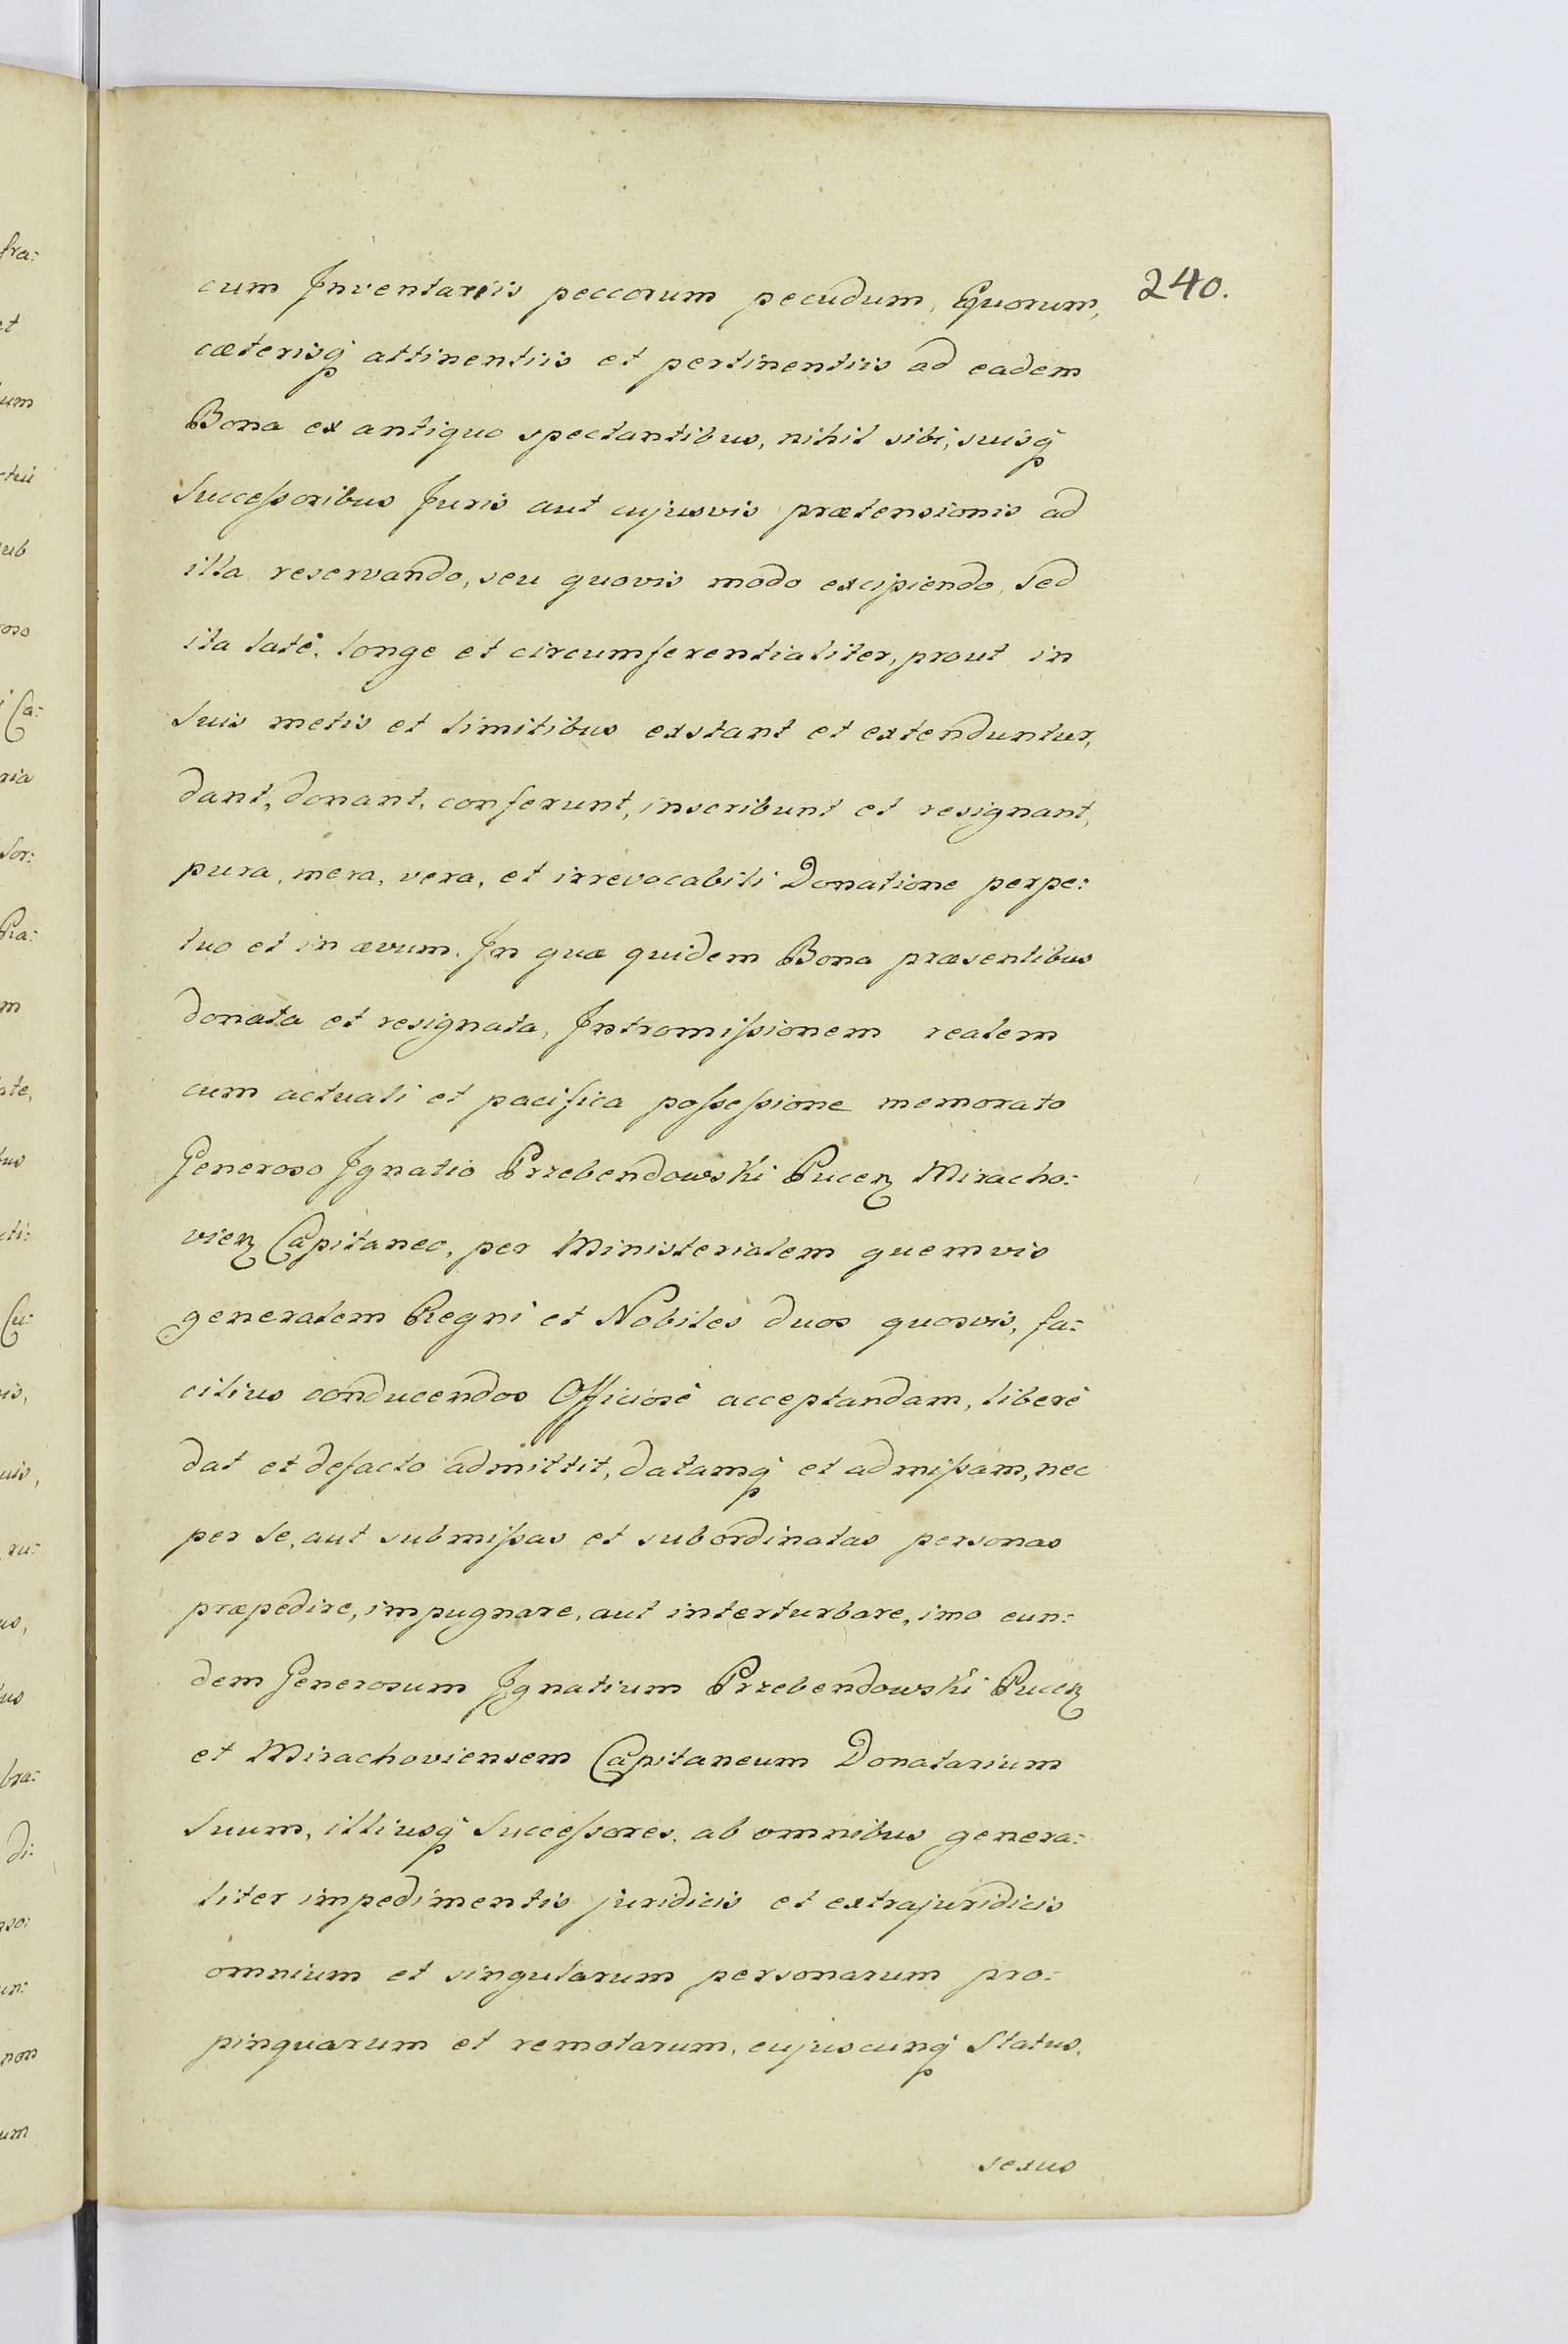 240.
cum Inventariis peccorum pecudum, Equorum,
cæterisq́ attinentiis et pertinentiis ad eadem
Bona ex antiquo spectantibus, nihil sibi, suisq́
Succeſsoribus Juris aut cujusvis prætensionis ad
illa reservando, seu quovis modo excipiendo, Sed
ita latè, longe et circumferentialiter, prout in
Suis metis et limitibus exstant et extenduntur,
dant, donant, conferunt, inscribunt et resignant,
pura, mera, vera, et irrevocabili Donatione perpe:
tuo et in ævum. In quæ quidem Bona præsentibus
donata et resignata, Intromiſsionem realem
cum actuali et pacifica poſseſsione memorato
Generoso Ignatio Przebendowski Pucen̄ Miracho:
vien̄ Capitaneo, per Ministerialem quemvis
generalem Regni et Nobiles duos quosvis, fa:
cilius conducendos Officiosè acceptandam, liberè
dat et defacto admittit, datamq́ et admiſsam, nec
per Se, aut submiſsas et subordinatas personas
præpedire, impugnare, aut interturbare, imo eun:
dem Generosum Ignatium Przebendowski Pucen̄
et Mirachoviensem Capitaneum Donatarium
Suum, illiusq́ Succeſsores, ab omnibus genera:
liter impedimentis juridicis et extrajuridicis
omnium et singularum personarum pro:
pinquarum et remotarum, cujuscunq́ Status,
sexus